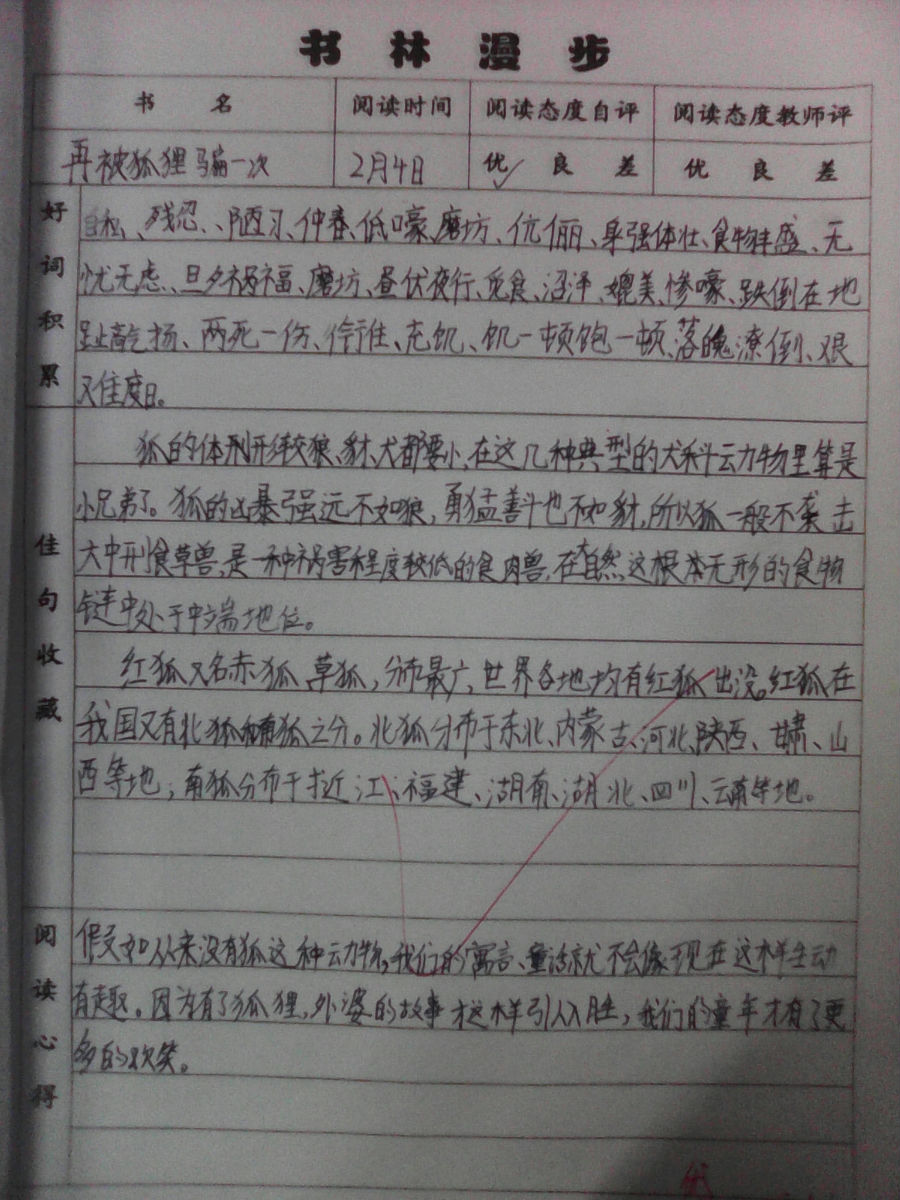 书林漫步
书名 阅读时间 阅读态度自评 阅读态度教师评
再被狐狸骗一次 2月4日 优✓ 良 差 优 良 差
好词积累
自私、残忍、陋习、仲春、低嚎、磨坊、伉俪、身强体壮、食物丰盛、无
忧无虑、旦夕祸福、磨坊、昼伏夜行、觅食、沼泽、媲美、惨嚎、跌倒在地
趾高气扬、两死一伤、、充饥、饥一顿饱一顿、落魄潦倒、艰
又住度日。
佳句收藏
狐的体形较狼、豺、犬都要小,在这几种典型的犬科动物里算是
小兄弟了。狐的凶暴强远不如狼,勇猛善斗也不如豺,所以狐一般不袭击
大中型食草兽,是一种祸害程度较低的食肉兽,在大自然这根本无形的食物
链中处于中端地位。
红狐又名赤狐、草狐,分布最广,世界各地均有红狐出没。红狐在
我国又有北狐和南狐之分。北狐分布于东北、内蒙古、河北、陕西、甘肃、山
西等地;南狐分布于浙江、福建、湖南、湖北、四川、云南等地。
阅读心得
假如从来没有狐这种动物,我们的寓言、童话就不会像现在这样生动
有趣。因为有了狐狸,外婆的故事才这样引人入胜,我们的童年才有了更
多的欢笑。